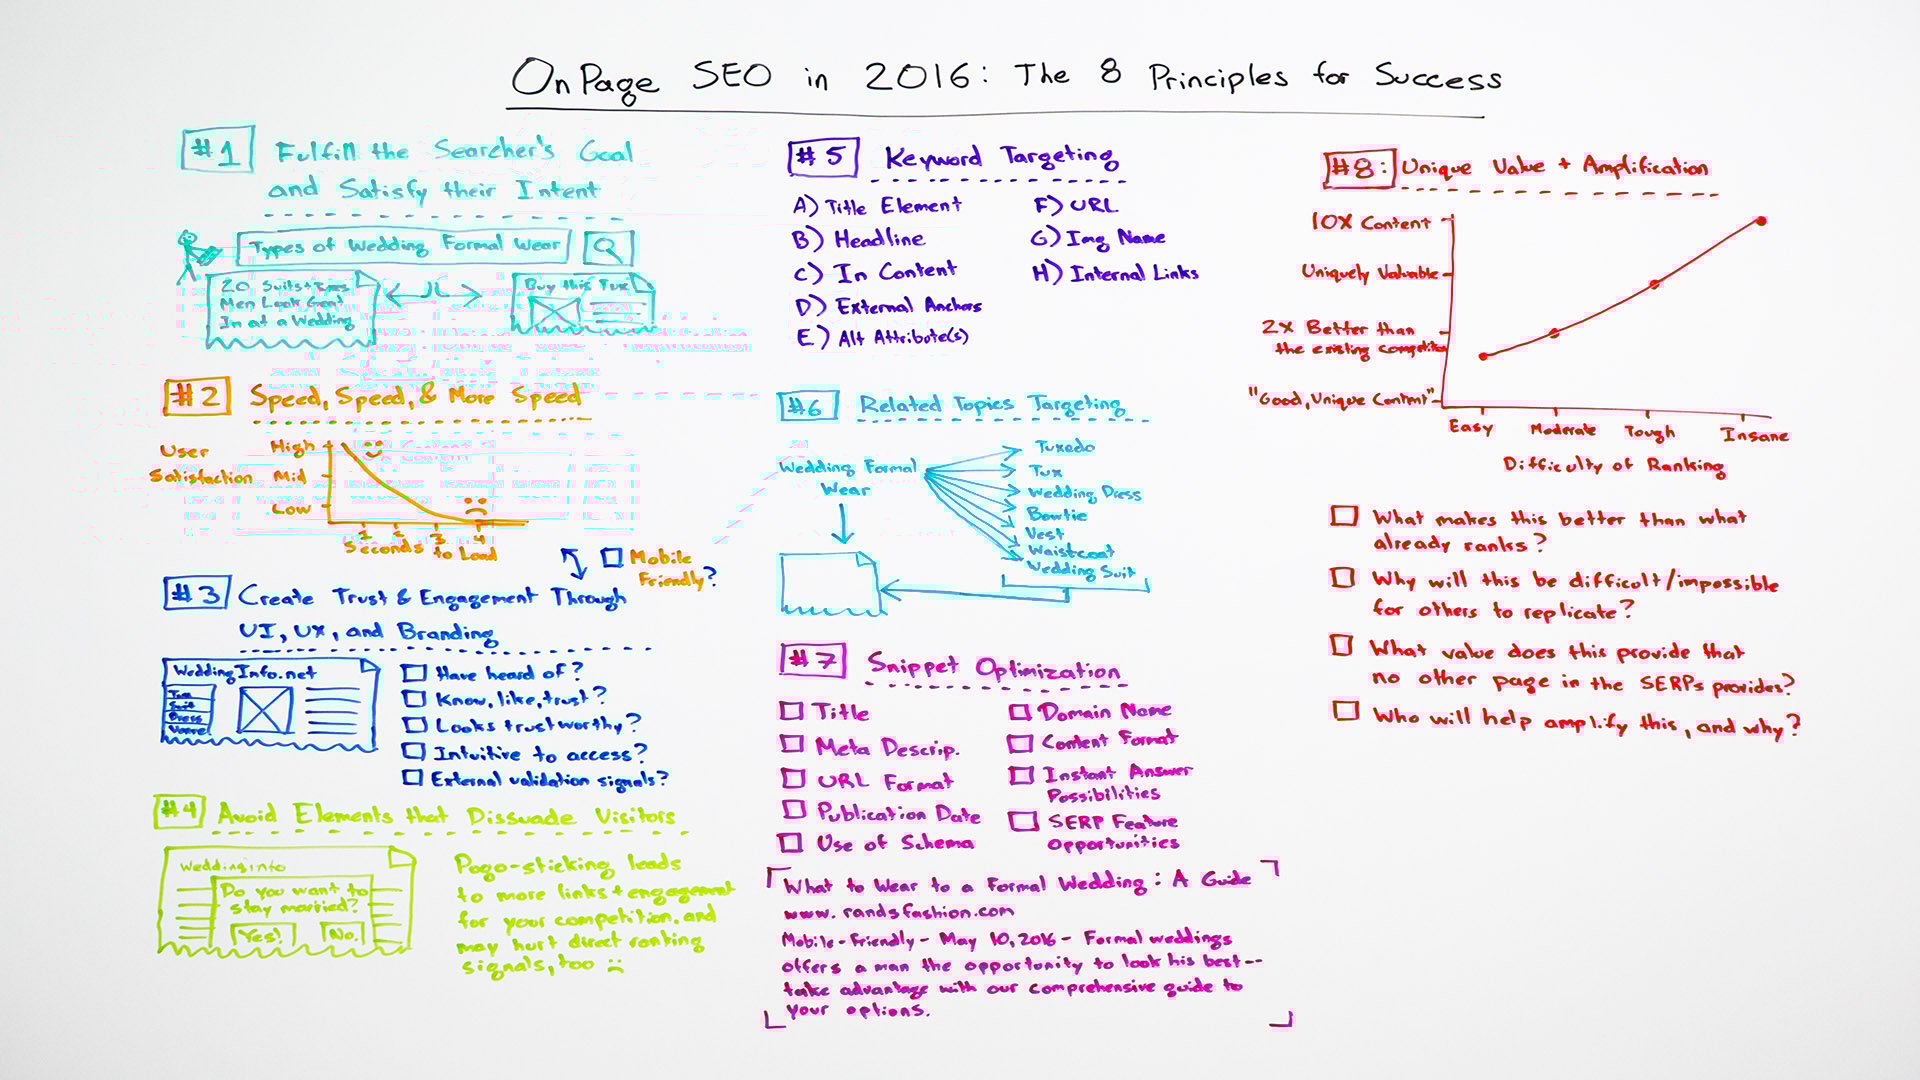 OnPage SEO in 2016: The 8 Principles for Success
#1 Fulfill the Searcher's Goal
and Satisfy their Intent
Types of Wedding Formal Wear
20 Suits+Tuxes
Men Look Great
In at a Wedding
Buy this Tux
#2 Speed, Speed, & More Speed
User
Satisfaction
High
Mid
Low
1 2 3 4
Seconds to Load
Mobile
Friendly?
#3 Create Trust & Engagement Through
UI, UX, and Branding
WeddingInfo.net
Tux
Suit
Dress
Have heard of?
Know, like, trust?
Looks trustworthy?
Intuitive to access?
External validation signals?
#4 Avoid Elements that Dissuade Visitors
Weddinginfo
Do you want to
stay married?
Yes! No.
Pogo-sticking leads
to more links + engagement
for your competition, and
may hurt direct ranking
signals, too
#5 Keyword Targeting
A) Title Element
B) Headline
C) In Content
D) External Anchors
E) Alt Attribute(s)
F) URL
G) Img Name
H) Internal Links
#6 Related Topics Targeting
Wedding Formal
Wear
Tuxedo
Tux
Wedding Dress
Bowtie
Vest
Waistcoat
Wedding Suit
#7 Snippet Optimization
Title
Meta Descrip.
URL Format
Publication Date
Use of Schema
Domain Name
Content Format
Instant Answer
Possibilities
SERP Feature
Opportunities
What to Wear to a Formal Wedding: A Guide
www.randsfashion.com
Mobile-Friendly - May 10, 2016 - Formal weddings
offers a man the opportunity to look his best--
take advantage with our comprehensive guide to
your options.
#8: Unique Value + Amplification
10X Content
Uniquely Valuable
2X Better than
the existing competitor
"Good, Unique Content"
Easy Moderate Tough Insane
Difficulty of Ranking
What makes this better than what
already ranks?
Why will this be difficult/impossible
for others to replicate?
What value does this provide that
no other page in the SERPs provides?
Who will help amplify this, and why?